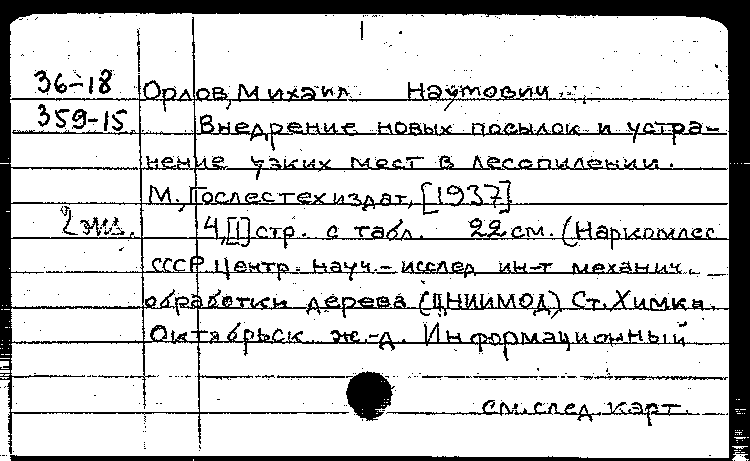 36-18 Орлов, Михаил Наумович.
359-15. Внедрение новых посылок и устра-
нение узких мест в лесопилении.
М., Гослестехиздат, [1937]
2 экз. 4,[1] стр. с табл. 22 см. (Наркомлес
СССР. Центр. науч.-исслед. ин-т механич.
обработки дерева (ЦНИИМОД) Ст. Химки.
Октябрьск. ж.-д. Информационный
см. след. карт.